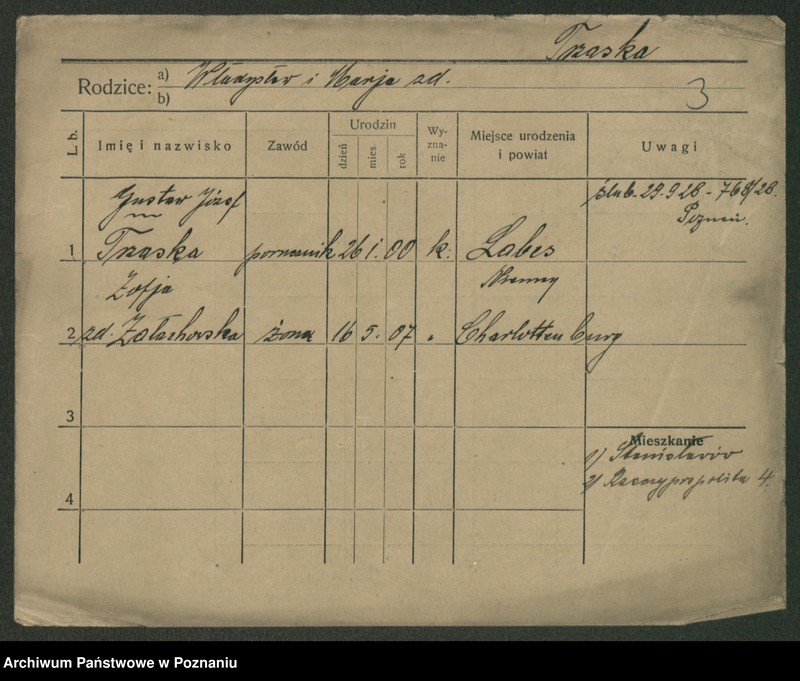 Trzaska
Rodzice: a) Władysław i Marja zd.
b)
3
L. b. Imię i nazwisko Zawód Urodzin dzień mies. rok Wy-zna-nie Miejsce urodzenia i powiat Uwagi
Gustaw Józef ślub 29.9.28 - 768/28.
Poznań.
1 Trzaska porucznik 26 1. 00 k. Labes
Zofja Niemcy
2 zd. Załachowska żona 16 5. 07 " Charlottenburg
3
Mieszkanie
1) Stanisławów
2) Rzeczypospolita 4.
4
Archiwum Państwowe w Poznaniu